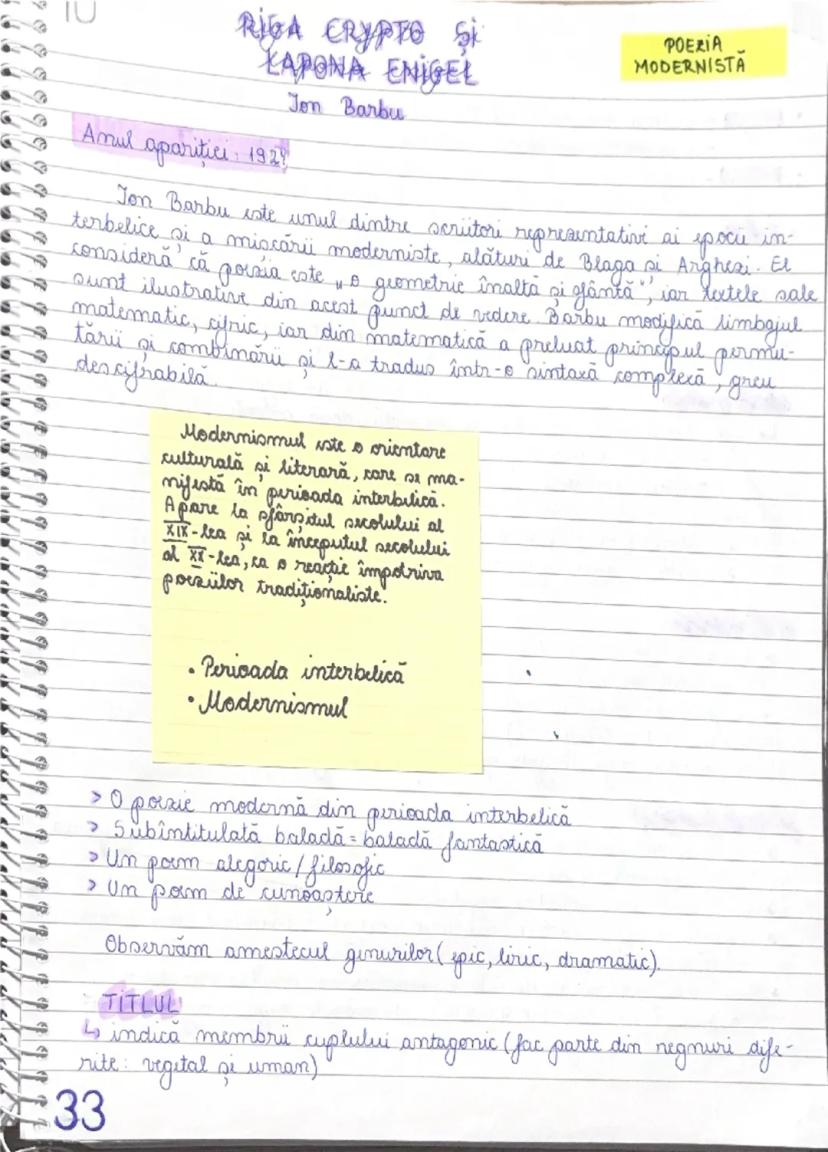 10
RIGA CRYPTO ȘI
LAPONA ENIGEL
POEZIA
MODERNISTĂ
Ion Barbu
Anul apariției: 192
Ion Barbu este unul dintre scriitori reprezentativi ai epocii in-
terbelice și a mișcării moderniste, alături de Blaga și Arghezi. El
consideră că poezia este „o geometrie înaltă și sfântă", iar textele sale
sunt ilustrative din acest punct de vedere. Barbu modifică limbajul
matematic, cifric, iar din matematică a preluat principul permu-
tării și combinării și l-a tradus într-o sintaxă complexă, greu
descifrabilă.
Modernismul este o orientare
culturală și literară, care se ma-
nifestă în perioada interbelică.
Apare la sfârșitul secolului al
XIX-lea și la începutul secolului
al XX-lea, ca o reacție împotriva
poeziilor tradiționaliste.
• Perioada interbelică
• Modernismul
> O poezie modernă din perioada interbelică
> Subîntitulată baladă = baladă fantastică
> Un poem alegoric / filosofic
> Un poem de cunoaștere
Observăm amestecul genurilor (epic, liric, dramatic).
TITLUL
↳ indică membrii cuplului antagonic (fac parte din regnuri dife-
rite: vegetal și uman)
33